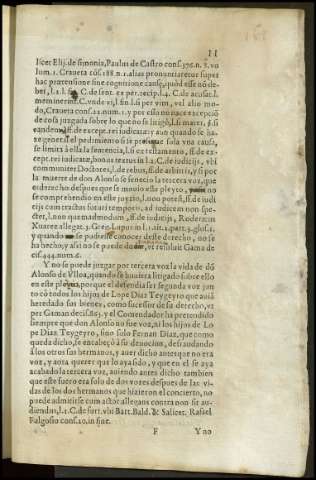 11
licet Elij. de simonia, Paulus de Castro cons. 376. n. 3. vo
lum. 1. Craueta cõs. 188. n. 1. alias pronuntiaretur super
hac prætensione sine cognitione causę, quod esse nõ de-
bet, l. 2. l. fin. C. de sent. ex per. recip. l. 4. C. de accusat. l.
meminerint, C. vnde vi, l. fin. l. si per vim, vel alio mo-
do, Craueta cons. num. 1. y por esso no nace excepciõ
de cosa juzgada sobre lo que no se litigò, l. si mater, §. si
ff. de except. rei iudicatæ: y aun quando se ha-
ze general el pedimento si se prosigue sola vna causa,
se limita à ella la sentencia, l. si ex testamento, ff. de ex-
cept. rei iudicatæ, bonus textus in l. 2. C. de iudicijs, vbi
communiter Doctores, l. de rebus, ff. de arbitris, y si por
la muerte de don Alonso se fenecio la tercera voz, que
es derecho despues que se mouio este pleyto, no
se comprehendio en este juyzio, l. non potest, ff. de iudi
cijs cum tractus futuri temporis, ad iudicem non spe-
ctet, l. non quemadmodum, ff. de iudicijs, Rodericus
Xuarez allegat. 9. Greg. Lopus in l. tit. 2. part. 3. glos. 1.
y quando se pudiesse conocer deste derecho, no se
ha hecho, y assi no se puede dezir, vt resoluit Gama de
cis. 444. num. 6.
Y no se puede juzgar por tercera voz la vida de dõ
Alonso de Vlloa, quando se houiera litigado sobre ello
en este pleyto, porque el defendia ser segunda voz jun
to cõ todos los hijos de Lope Diaz Teygeyro que auiã
heredado sus bienes, como sucessor de su derecho, vt
per Gaman decis. 85. y el Comendador ha pretendido
siempre que don Alonso no fue voz, ni los hijos de Lo
pe Diaz Teygeyro, sino solo Fernan Diaz, que como
queda dicho, se encabeçò à su deuocion, defraudando
à los otros sus hermanos, y auer dicho antes que no era
voz, y aora querer que lo aya sido, y que en el se aya
acabado la tercera voz, auiendo antes dicho tambien
que este fuero era solo de dos vozes despues de las vi-
das de los dos hermanos que hizieron el concierto, no
puede admitirse cum actor allegans contraria non sit au-
diendus, l. 1. C. de furt. vbi Bart. Bald. & Salicet. Rafael
Fulgosio cons. 10. in fine.
F Y no